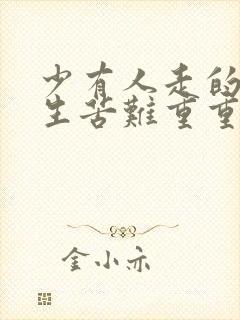 少有人走的
生苦難重重
金小亦